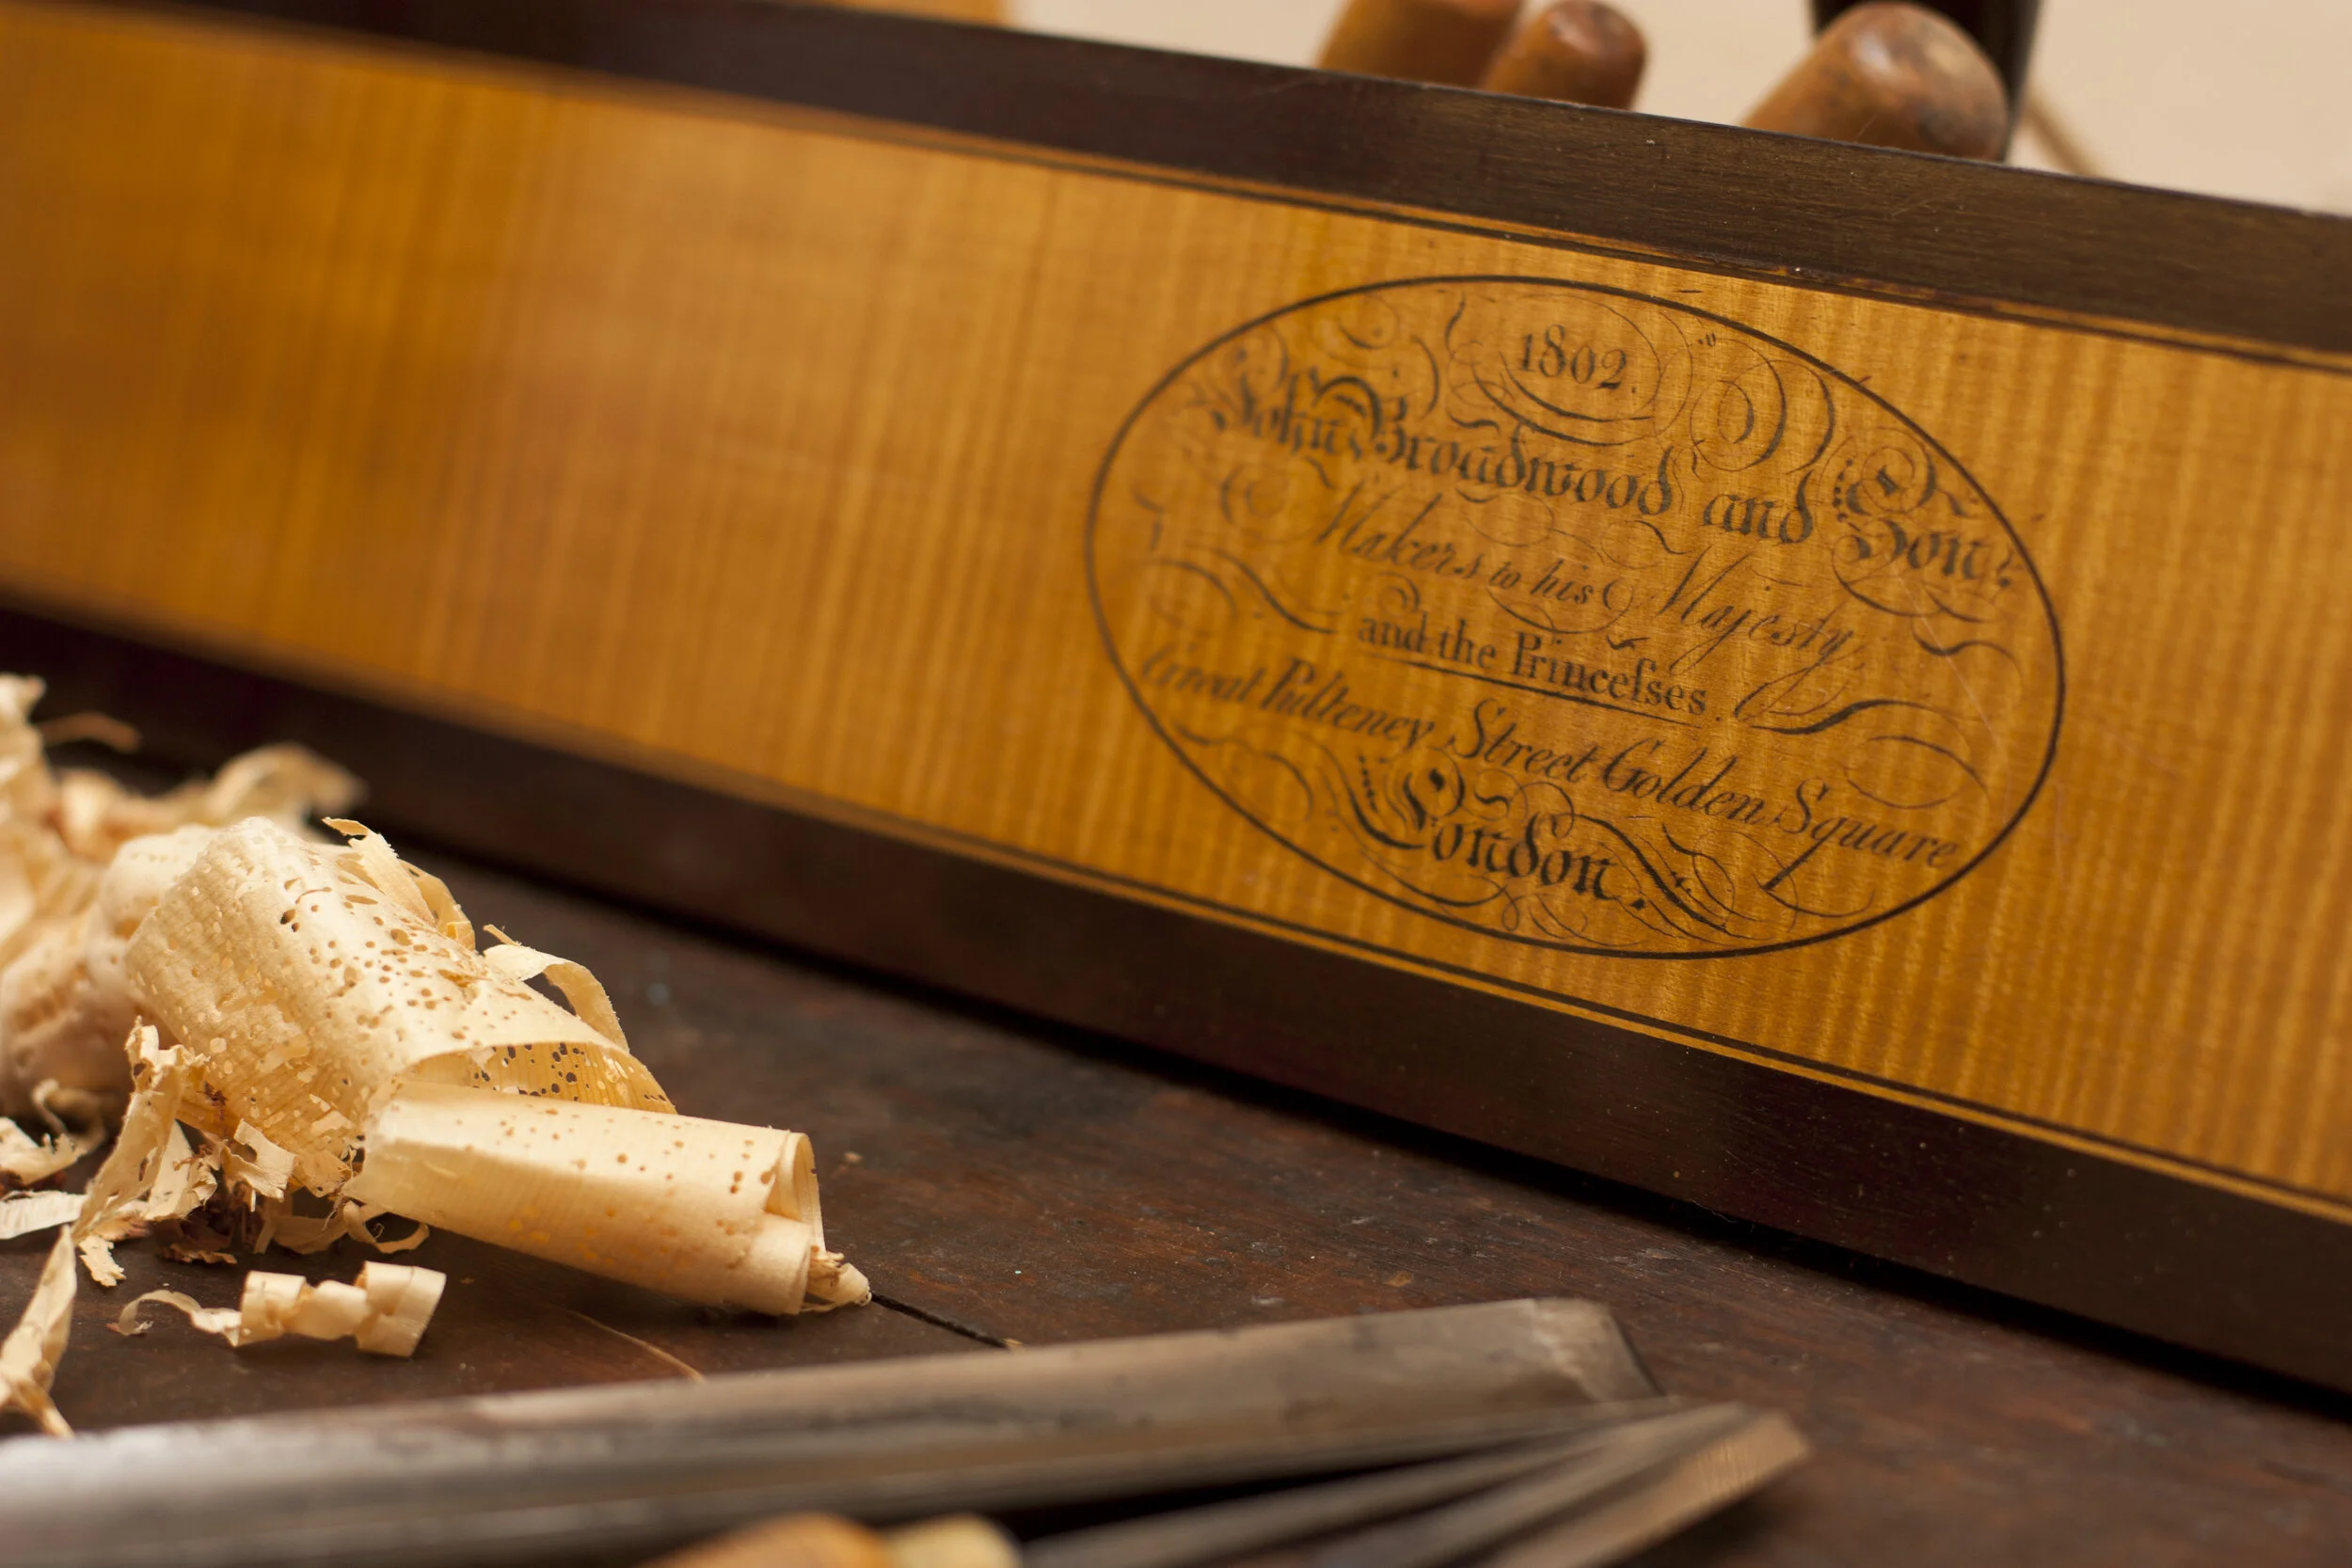 1802.
John Broadwood and Son.
Makers to his Majesty,
and the Princeſses.
Great Pulteney Street Golden Square
London.